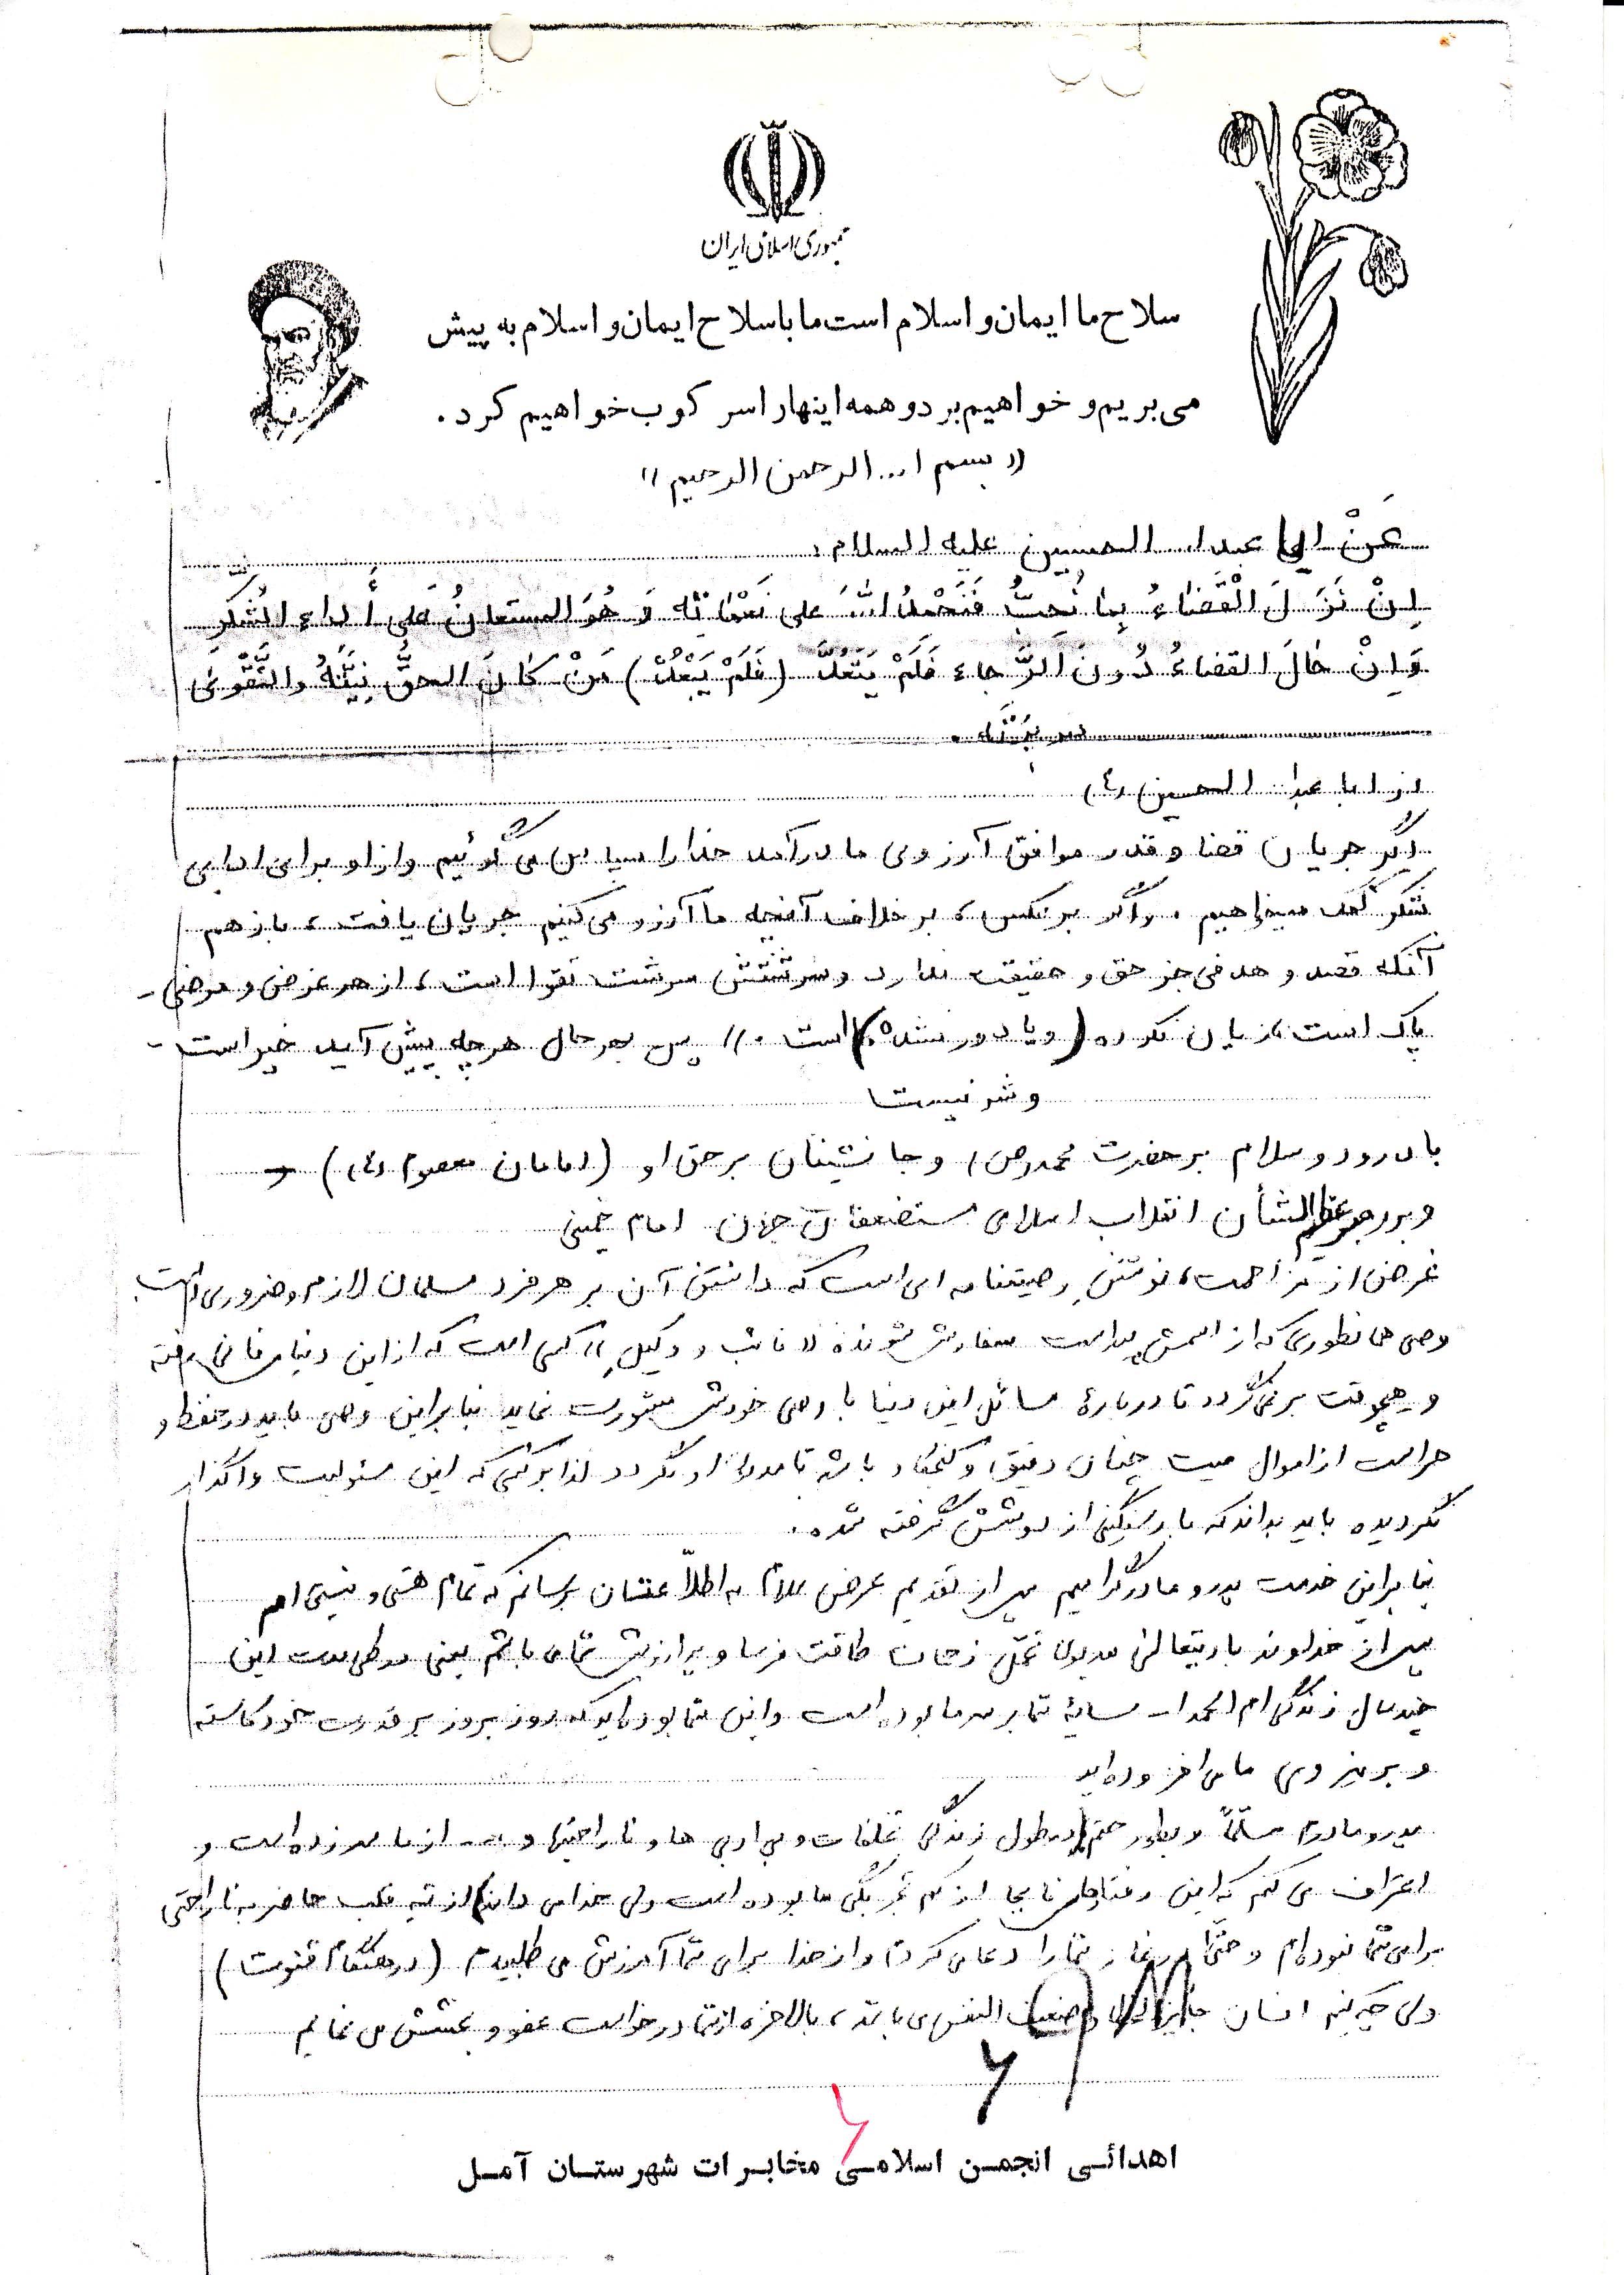 جمهوری اسلامی ایران
سلاح ما ایمان و اسلام است ما با سلاح ایمان و اسلام به پیش
می بریم و خواهیم برد و همه اینها را سر کوب خواهیم کرد .
« بسم ا... الرحمن الرحیم »
عَنْ ابی عبدا... الحسین علیه السلام :
اِنْ نَزَلَ الْقَضاءُ بِما نُحِبُّ فَنَحْمَدُ اللهَ علی نَعْمائِه وَ هُوَ المستعانُ عَلی أَداءِ الشُّکرِ
وَ اِنْ حالَ القضاءُ دُونَ الرَّجاء فَلَمْ یَتَعَدَّ (فَلَمْ یَبْعُدْ) مَنْ کانَ الحقُّ نِیَّتَهُ والتَّقْوی
سریرَتَه .
از ابا عبدا... الحسین (ع)
اگر جریان قضا و قدر موافق آرزوی ما درآمد خدا را سپاس می گوئیم و از او برای ادای
شکر کمک میخواهیم . و اگر برعکس ، برخلاف آنچه ما آرزو می کنیم جریان یافت ، باز هم
آنکه قصد و هدفی جز حق و حقیقت ندارد و سرشتش سرشت تقوا است ، از هر غرض و مرضی -
پاک است ، زیان نکرده (و یا دور نشده) است . » پس بهرحال هرچه پیش آید خیر است -
و شر نیست
با درود و سلام بر حضرت محمد (ص) و جانشینان برحق او (امامان معصوم (ع)) و
و بر رهبر عظیم الشأن انقلاب اسلامی مستضعفان جهان امام خمینی
غرض از مزاحمت ، نوشتن وصیتنامه ای است که دانستن آن بر هر فرد مسلمان لازم و ضروری است
وصی همانطوری که از اسمش پیداست سفارش شونده « نائب و وکیل » کسی است که از این دنیای فانی رفته
و هیچوقت برنمی گردد تا دربارهٔ مسائل این دنیا با وصی خودش مشورت نماید بنابراین وصی باید در حفظ و
حراست از اموال میت چنان دقیق و کنجکاو باشد تا مدیون او نگردد لذا بر کسی که این مسئولیت واگذار
نگردیده باید بداند که بار سنگینی از دوشش گرفته شده .
بنابراین خدمت پدر و مادر گرامیم پس از تقدیم عرض سلام به اطلاعتان برسانم که تمام هستی و نیستی ام
پس از خداوند باریتعالی مدیون تحمل زحمات طاقت فرسا و پرارزش شما می باشم یعنی در طی مدت این
چند سال زندگی ام الحمدا... سایهٔ شما بر سر ما بوده است و این شما بوده اید که روز بروز بر قدرت خود کاسته
و بر نیروی ما می افزوده اید
پدر و مادرم مسلماً و بطور حتم در طول زندگی تخلفات و بی ادبی ها و ناراحتیها و ... از ما سر زده است و
اعتراف می کنم که این رفتارهای نابجا از کم تجربگی ما بوده است ولی خدا می داند از ته قلب حاضر به ناراحتی
برای شما نبوده ام و حتی در نماز شما را دعا می کردم و از خدا برای شما آمرزش می طلبیدم (در هنگام قنوت)
ولی چه کنم انسان جایز الخطا و ضعیف النفس می باشد ، بالاخره از شما درخواست عفو و بخشش می نمایم
۶
۶
اهدائی انجمن اسلامی مخابرات شهرستان آمل